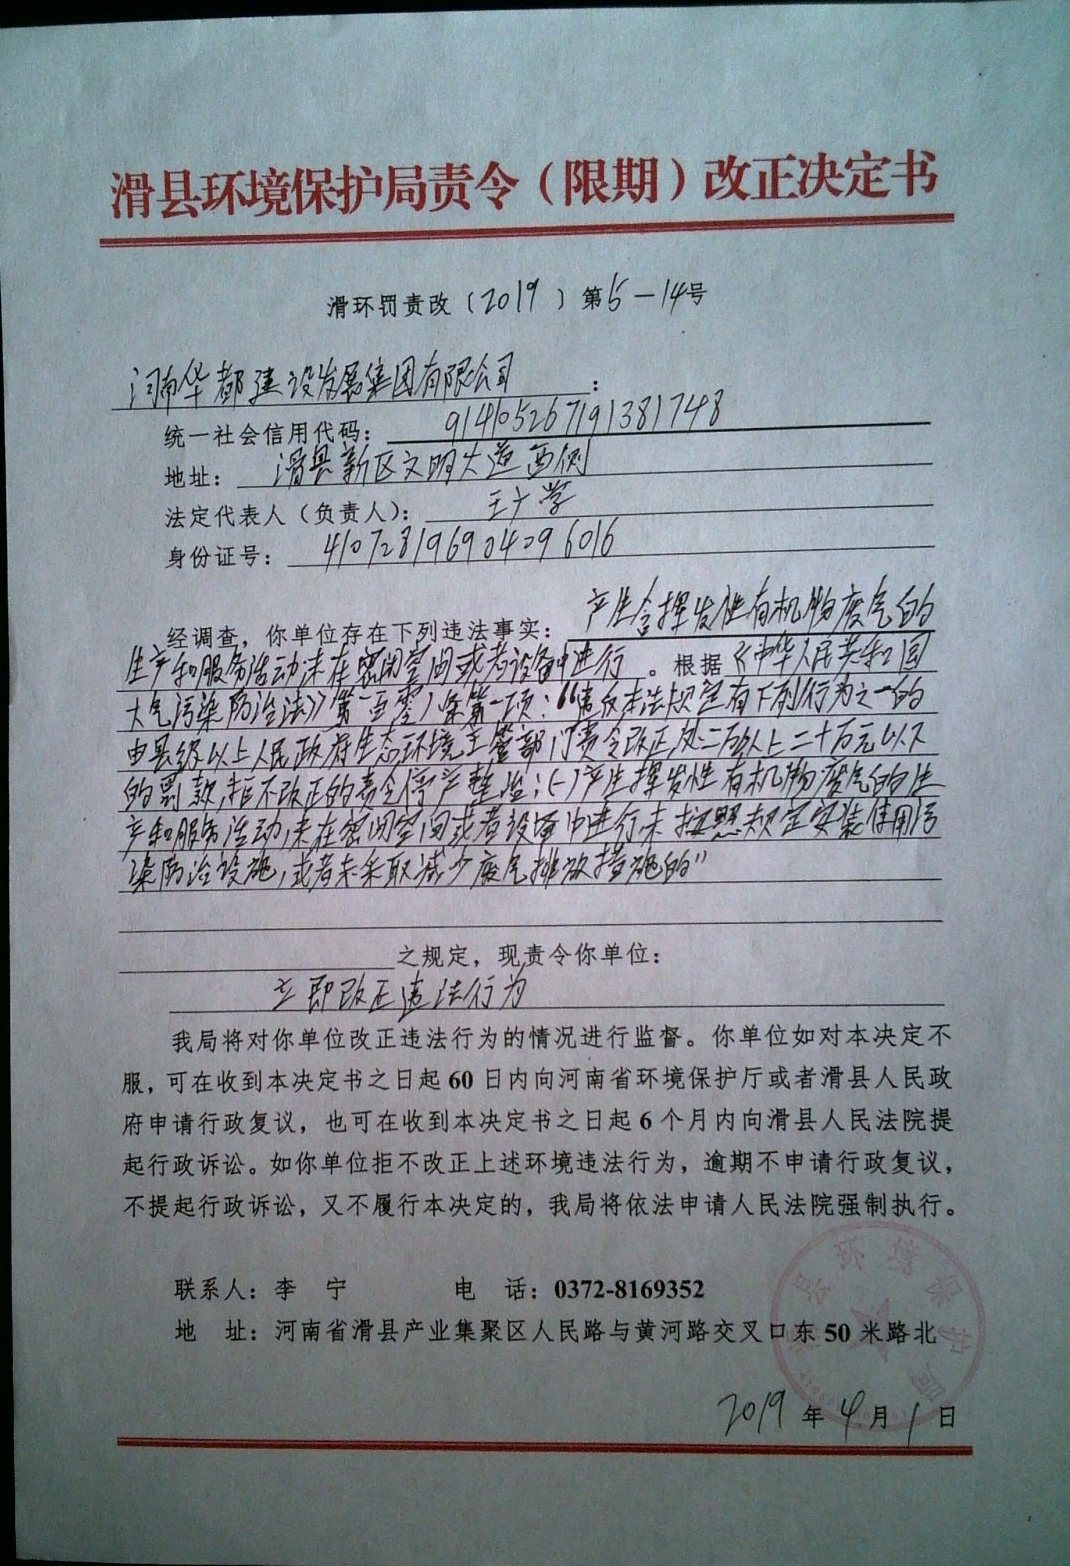 滑县环境保护局责令（限期）改正决定书
滑环罚责改（2019）第5-14号
河南华都建设发展集团有限公司：
统一社会信用代码：914105267191381748
地址：滑县新区文明大道西侧
法定代表人（负责人）：王广学
身份证号：410728196904096016
产生含挥发性有机物废气的
经调查，你单位存在下列违法事实：
生产和服务活动未在密闭空间或者设备中进行。根据《中华人民共和国
大气污染防治法》第一百零八条第一项："违反本法规定有下列行为之一的
由县级以上人民政府生态环境主管部门责令改正处二万以上二十万元以下
的罚款，拒不改正的责令停产整治：(一)产生挥发性有机物废气的生
产和服务活动，未在密闭空间或者设备中进行未按照规定安装使用污
染防治设施，或者未采取减少废气排放措施的"
之规定，现责令你单位：
立即改正违法行为
我局将对你单位改正违法行为的情况进行监督。你单位如对本决定不
服，可在收到本决定书之日起60日内向河南省环境保护厅或者滑县人民政
府申请行政复议，也可在收到本决定书之日起6个月内向滑县人民法院提
起行政诉讼。如你单位拒不改正上述环境违法行为，逾期不申请行政复议，
不提起行政诉讼，又不履行本决定的，我局将依法申请人民法院强制执行。
联系人：李 宁 电 话：0372-8169352
地 址：河南省滑县产业集聚区人民路与黄河路交叉口东50米路北
滑县环境保护局
2019年4月1日